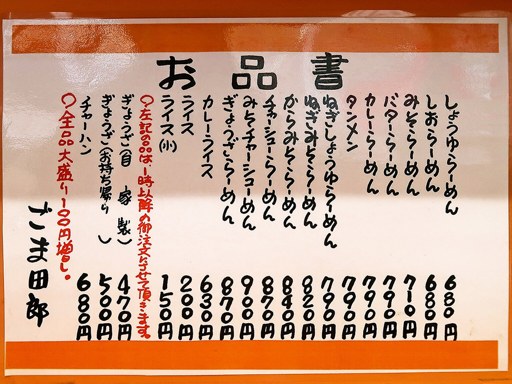 お品書
しょうゆらーめん 680円
しおらーめん 680円
みそらーめん 710円
バターらーめん 790円
カレーらーめん 790円
タンメン 790円
ねぎしょうゆらーめん 790円
ねぎみそらーめん 820円
からみそらーめん 840円
チャーシューらーめん 870円
みそチャーシューめん 900円
ぎょうざらーめん 870円
カレーライス 630円
ライス 200円
ライス(小) 150円
○左記の品は一時以降の御注文とさせて頂きます。
ぎょうざ(自家製) 470円
ぎょうざ(お持ち帰り) 500円
チャーハン 680円
○全品大盛り100円増し。
ごま田郎